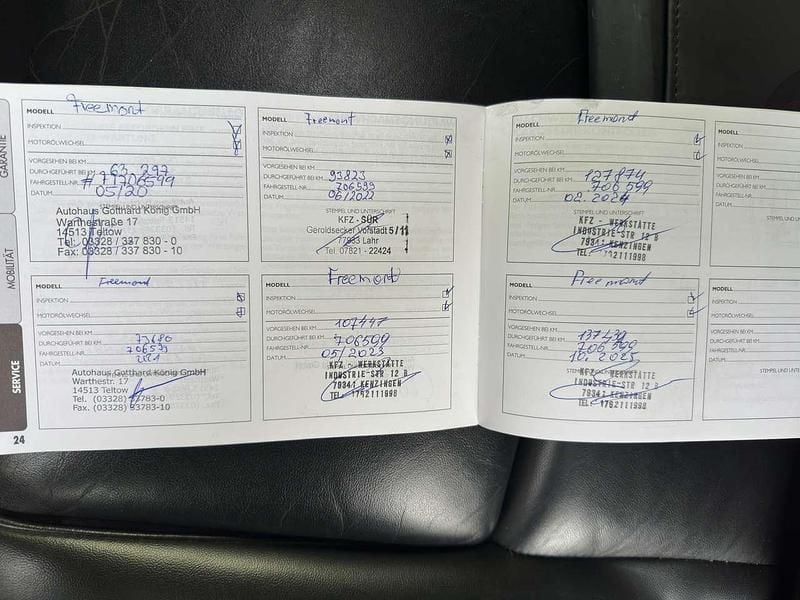 GARANTIE
MOBILITÄT
SERVICE
24
MODELL Freemont
INSPEKTION
MOTORÖLWECHSEL
VORGESEHEN BEI KM
DURCHGEFÜHRT BEI KM 63 297
FAHRGESTELL-NR.
DATUM 05/20
Autohaus Gotthard König GmbH
Warthestraße 17
14513 Teltow
Tel: 03328 / 337 830 - 0
Fax: 03328 / 337 830 - 10
MODELL Freemont
INSPEKTION
MOTORÖLWECHSEL
VORGESEHEN BEI KM
DURCHGEFÜHRT BEI KM
FAHRGESTELL-NR. 706599
DATUM
Autohaus Gotthard König GmbH
Warthestr. 17
14513 Teltow
Tel. (03328) 33783-0
Fax. (03328) 33783-10
MODELL Freemont
INSPEKTION
MOTORÖLWECHSEL
VORGESEHEN BEI KM
DURCHGEFÜHRT BEI KM 93823
FAHRGESTELL-NR. 706599
DATUM 06/2022
STEMPEL UND UNTERSCHRIFT
KFZ - SÜR
Geroldsecker Vorstadt 5/11
77933 Lahr
Tel. 07821 - 22424
MODELL Freemont
INSPEKTION
MOTORÖLWECHSEL
VORGESEHEN BEI KM
DURCHGEFÜHRT BEI KM 107447
FAHRGESTELL-NR. 706599
DATUM 05/2023
KFZ - WERKSTÄTTE
INDUSTRIE-STR 12 B
79341 KENZINGEN
TEL. 1762111998
MODELL Freemont
INSPEKTION
MOTORÖLWECHSEL
VORGESEHEN BEI KM
DURCHGEFÜHRT BEI KM 127874
FAHRGESTELL-NR. 706599
DATUM 02.2024
STEMPEL UND UNTERSCHRIFT
KFZ - WERKSTÄTTE
INDUSTRIE-STR 12 B
79341 KENZINGEN
TEL. 1762111998
MODELL Freemont
INSPEKTION
MOTORÖLWECHSEL
VORGESEHEN BEI KM
DURCHGEFÜHRT BEI KM 137439
FAHRGESTELL-NR. 706599
DATUM 10.2025
KFZ - WERKSTÄTTE
INDUSTRIE-STR 12 B
79341 KENZINGEN
TEL. 1762111998
MODELL
INSPEKTION
MOTORÖLWECHSEL
VORGESEHEN BEI KM
DURCHGEFÜHRT BEI
FAHRGESTELL-NR.
DATUM
MODELL
INSPEKTION
MOTORÖLWECHSEL
VORGESEHEN BEI KM
DURCHGEFÜHRT BEI
FAHRGESTELL-NR.
DATUM